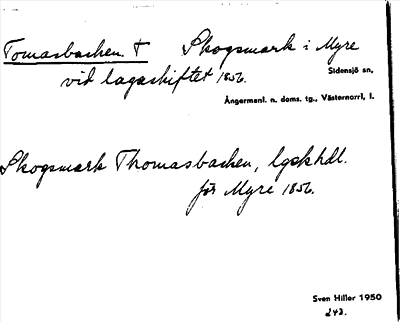 Tomasbacken. † Skogsmark i Myre
vid lagaskiftet 1856.
Sidensjö sn,
Ångermanl. n. doms. tg., Västernorrl, l.
Skogsmark Thomasbacken, lgskhdl.
för Myre 1856.
Sven Hiller 1950
243.